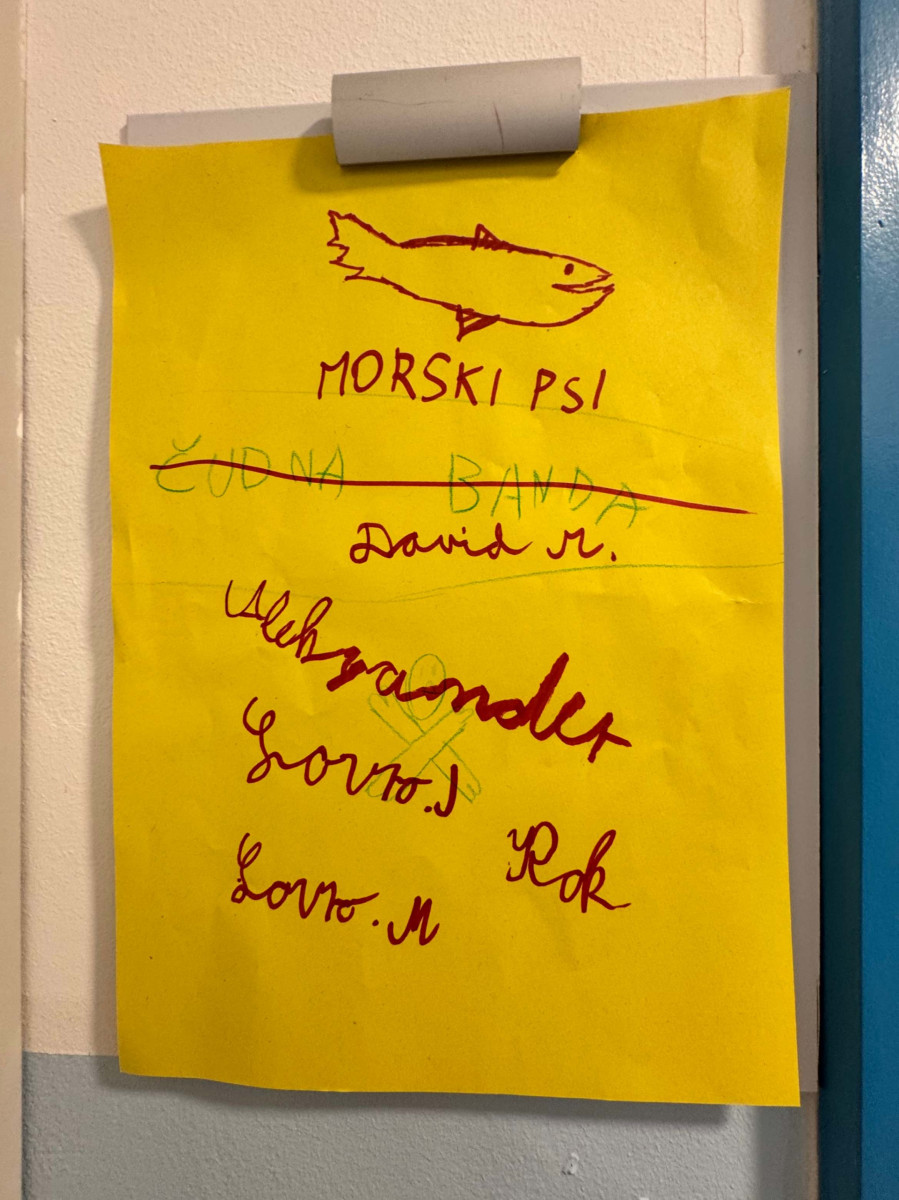 MORSKI PSI
ČUDNA BANDA
David M.
Aleksander
Lovro.J
Rok
Lovro.M